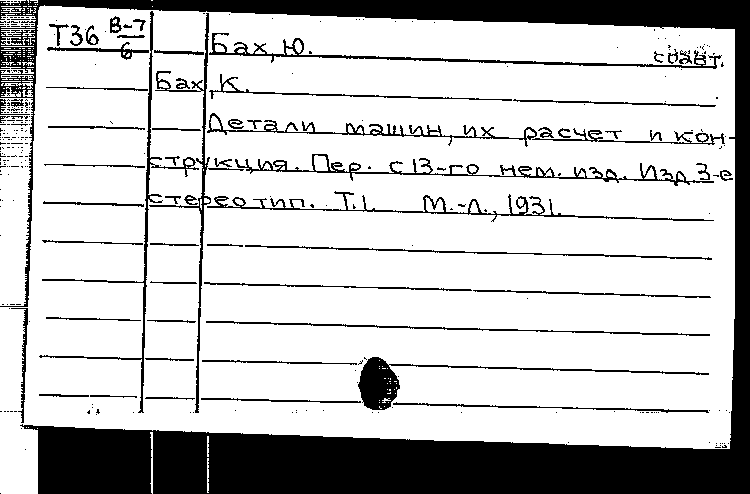 Т36 В-7/6 Бах, Ю. соавт.
Бах, К.
Детали машин, их расчет и кон-
струкция. Пер. с 13-го нем. изд. Изд. 3-е
стереотип. Т.1. М.-Л., 1931.